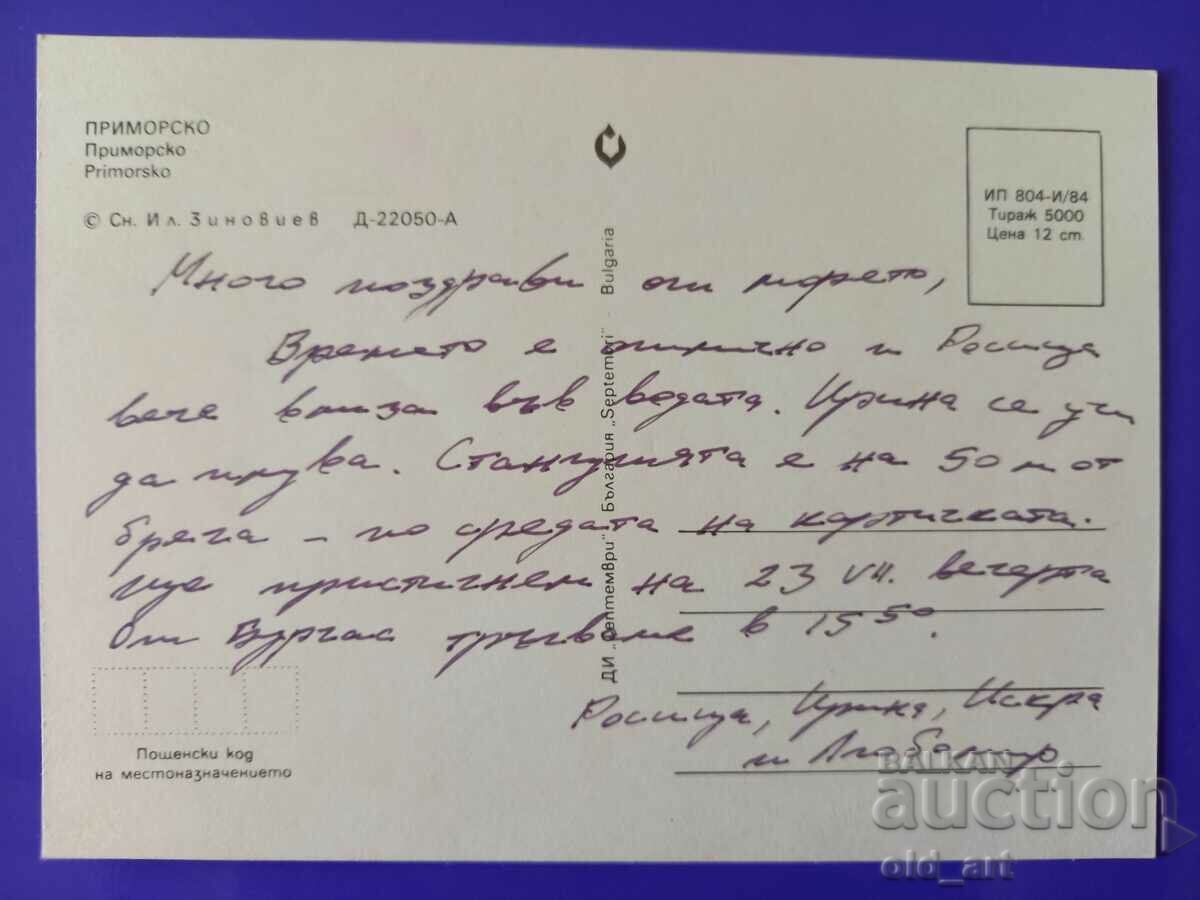 ПРИМОРСКО
Приморско
Primorsko
© Сн. Ил. Зиновиев Д-22050-А
ИП 804-И/84
Тираж 5000
Цена 12 ст.
ДИ „Септември" България „Septemvri" - Bulgaria
Много поздрави от морето,
Времето е типично и Росица
вече влиза във водата. Ирина се учи
да плува. Станцията е на 50 м от
брега – по средата на картичката.
Ще пристигнем на 23 VII. вечерта
От Бургас тръгваме в 15 50.
Росица, Ирина, Искра
и
Пощенски код
на местоназначението
BALKAN
auction
old_art